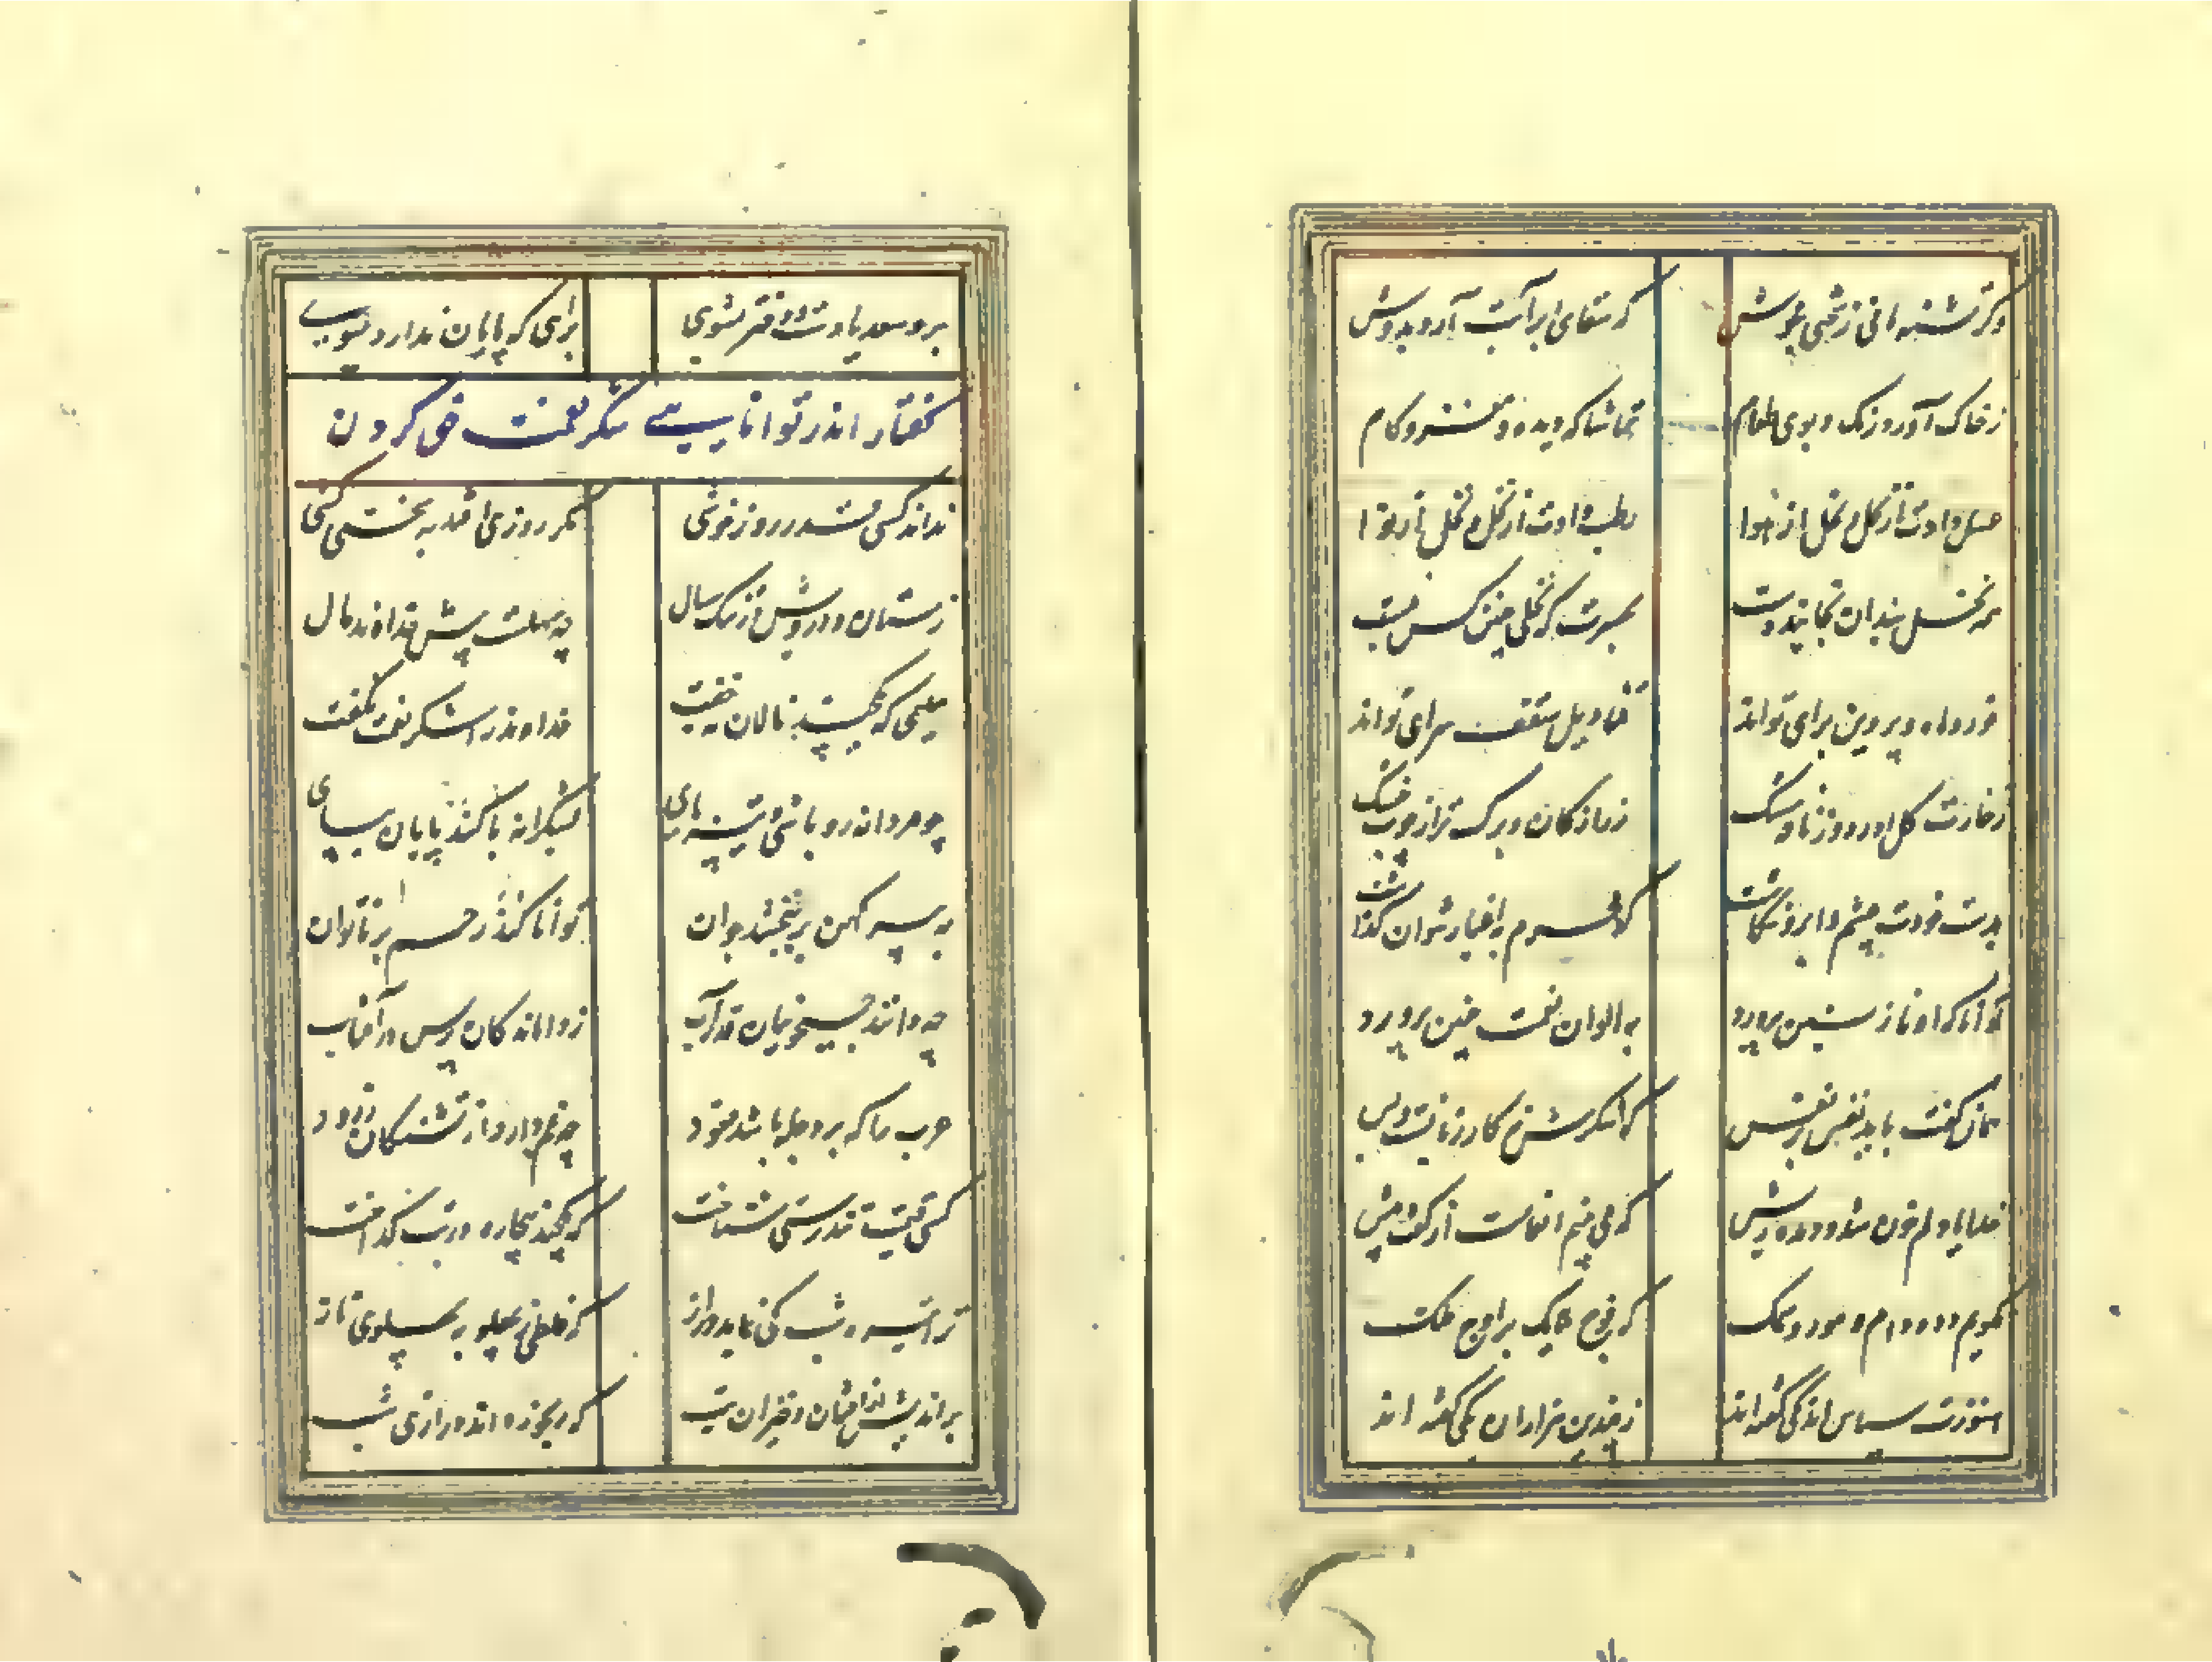 وگر تشنه مانی ز سختی مجوش
که سقای ابر آبت آرد بدوش
ز خاک آورد رنگ و بوی طعام
تماشاگه دیده و مغز و کام
عسل دادت از نحل و نحل از هوا
رطب دادت از نخل و نخل از نوا
همه نخل بندان بخایند دست
بحیرت که نخلی چنین کس نبست
خور و ماه و پروین برای تواند
قنادیل سقف سرای تواند
ز خارت گل آورد و از نافه مشک
زر از کان و برگ تر از چوب خشک
بدست خودت چشم و ابرو نگاشت
که محرم باغیار نتوان گذاشت
توانا که او نازنین پرورد
به الوان نعمت چنین پرورد
بجان گفت باید نفس بر نفس
که شکرش نه کار زبانست و بس
خدایا دلم خون شد و دیده ریش
که می بینم انعامت از گفت بیش
نگویم دد و دام و مور و سمک
که فوج ملایک بر اوج فلک
هنوزت سپاس اندکی گفته اند
ز چندین هزاران یکی گفته اند
برو سعدیا دست و دفتر بشوی
براهی که پایان ندارد مپوی
گفتار اندر توانایی شکر نعمت حق کردن
نداند کسی قدر روز خوشی
مگر روزی افتد به سختی کشی
زمستان درویش در تنگ سال
چه سهلست پیش خداوند مال
سلیمی که یکچند نالان نخفت
خداوند را شکر نعمت نگفت
چو مردانه رو باشی و تیز پای
بشکرانه با کندپایان بپای
به پیر کهن بر ببخشد جوان
توانا کند رحم بر ناتوان
چه دانند جیحونیان قدر آب
ز واماندگان پرس در آفتاب
عرب را که بر دجله باشد قعود
چه غم دارد از تشنگان زرود
کسی قیمت تندرستی شناخت
که یکچند بیچاره در تب گداخت
ترا تیره شب کی نماید دراز
که غلطی ز پهلو به پهلوی ناز
بر اندیش از افتان و خیزان تب
که رنجور داند درازی شب